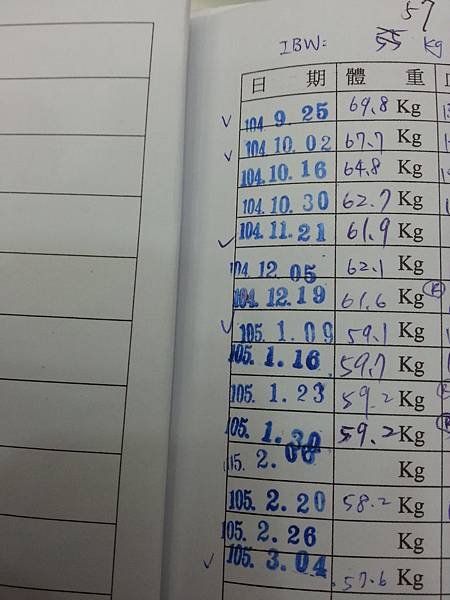 57
IBW: 55 kg
日 期 體 重
104 9. 25 69.8 Kg
104 10. 02 67.7 Kg
104. 10. 16 64.8 Kg
104. 10. 30 62.7 Kg
104. 11. 21 61.9 Kg
104. 12. 05 62.1 Kg
104. 12. 19 61.6 Kg
105. 1. 09 59.1 Kg
105. 1. 16 59.7 Kg
105. 1. 23 59.2 Kg
105. 1. 30 59.2 Kg
105. 2. 06 Kg
105. 2. 20 58.2 Kg
105. 2. 26 Kg
105. 3. 04 57.6 Kg